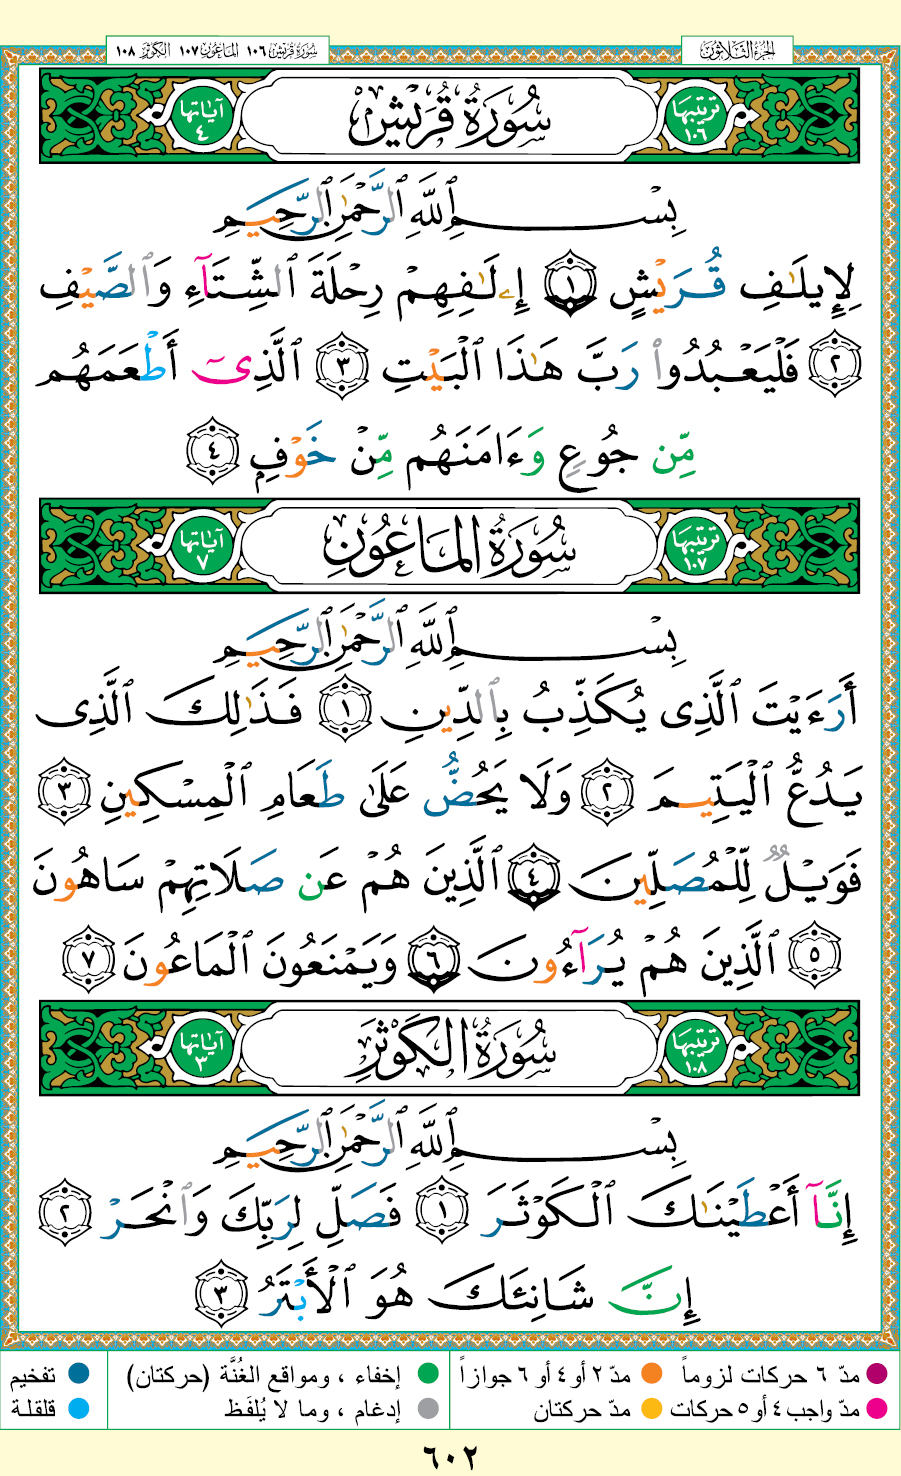 الجزء الثلاثون
سورة قريش ١٠٦ الماعون ١٠٧ الكوثر ١٠٨
ترتيبها ١٠٦ سُورَةُ قُرَيْشٍ آياتها ٤
بِسْمِ ٱللَّهِ ٱلرَّحْمَٰنِ ٱلرَّحِيمِ
لِإِيلَٰفِ قُرَيْشٍ ١ إِۦلَٰفِهِمْ رِحْلَةَ ٱلشِّتَآءِ وَٱلصَّيْفِ
٢ فَلْيَعْبُدُوا۟ رَبَّ هَٰذَا ٱلْبَيْتِ ٣ ٱلَّذِىٓ أَطْعَمَهُم
مِّن جُوعٍ وَءَامَنَهُم مِّنْ خَوْفٍ ٤
ترتيبها ١٠٧ سُورَةُ المَاعُونِ آياتها ٧
بِسْمِ ٱللَّهِ ٱلرَّحْمَٰنِ ٱلرَّحِيمِ
أَرَءَيْتَ ٱلَّذِى يُكَذِّبُ بِٱلدِّينِ ١ فَذَٰلِكَ ٱلَّذِى
يَدُعُّ ٱلْيَتِيمَ ٢ وَلَا يَحُضُّ عَلَىٰ طَعَامِ ٱلْمِسْكِينِ ٣
فَوَيْلٌ لِّلْمُصَلِّينَ ٤ ٱلَّذِينَ هُمْ عَن صَلَاتِهِمْ سَاهُونَ
٥ ٱلَّذِينَ هُمْ يُرَآءُونَ ٦ وَيَمْنَعُونَ ٱلْمَاعُونَ ٧
ترتيبها ١٠٨ سُورَةُ الكَوْثَرِ آياتها ٣
بِسْمِ ٱللَّهِ ٱلرَّحْمَٰنِ ٱلرَّحِيمِ
إِنَّآ أَعْطَيْنَٰكَ ٱلْكَوْثَرَ ١ فَصَلِّ لِرَبِّكَ وَٱنْحَرْ ٢
إِنَّ شَانِئَكَ هُوَ ٱلْأَبْتَرُ ٣
مدّ ٦ حركات لزوماً مدّ ٢ أو ٤ أو ٦ جوازاً إخفاء ، ومواقع الغُنَّة (حركتان) تفخيم
مدّ واجب ٤ أو ٥ حركات مدّ حركتان إدغام ، وما لا يُلفَظ قلقلة
٦٠٢